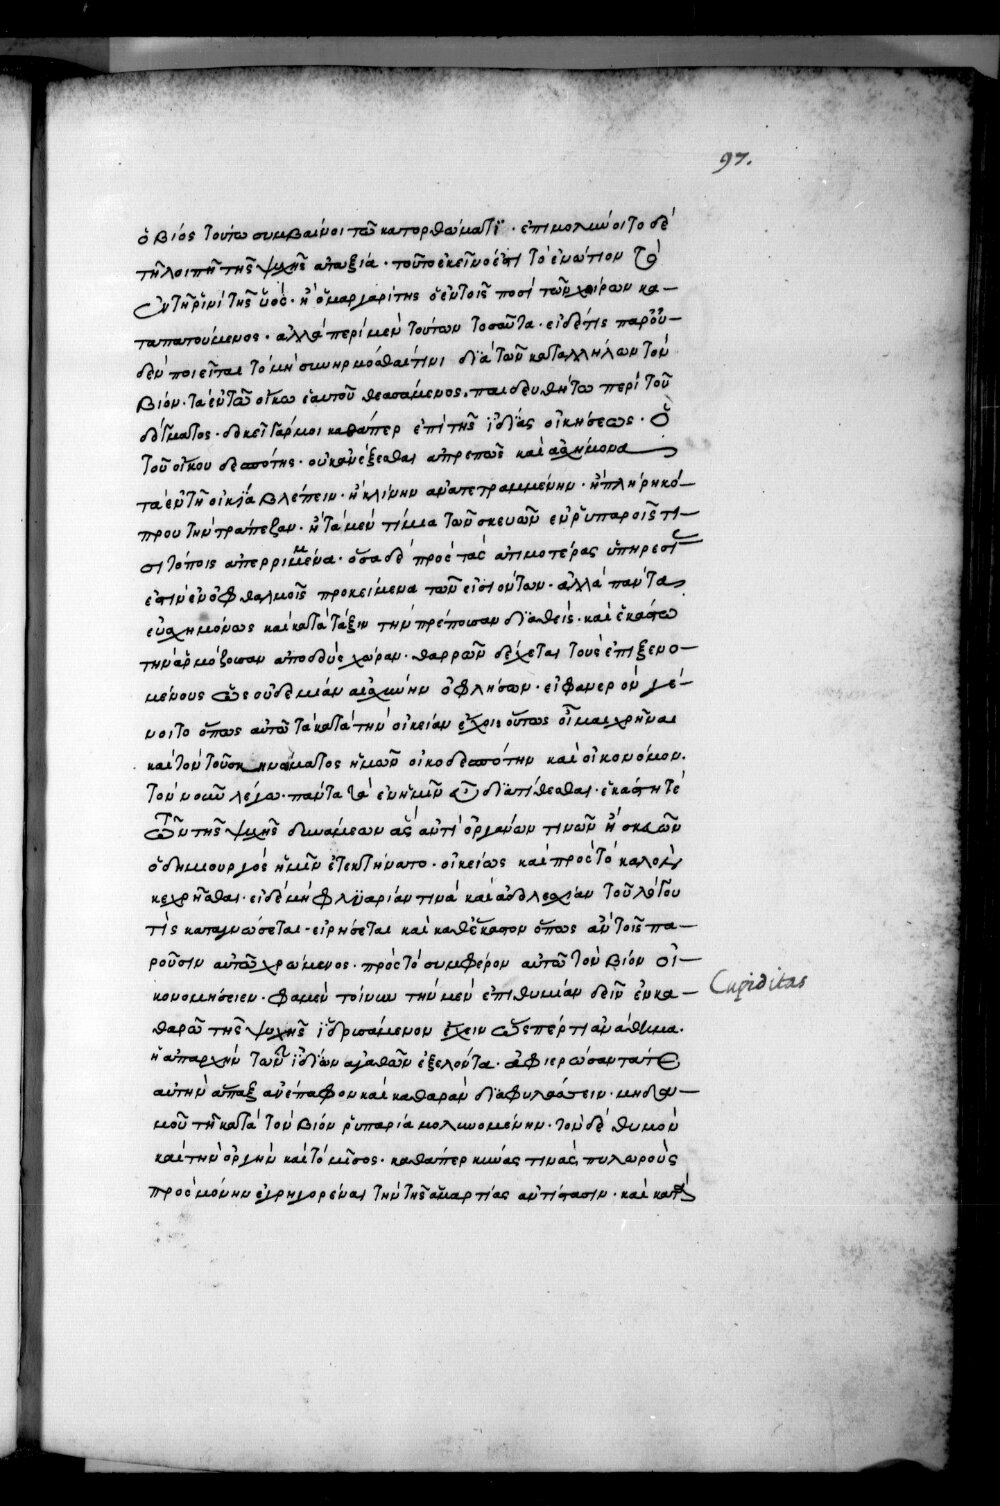 97.
ὁ βίος τούτω συμβαίνοι τῶ κατορθώματϊ · ἐπιμολύνοιτο δὲ
τῆ λοιπῆ τῆς ψυχῆς ἀταξία · τοῦτο ἐκεῖνο ἐστὶ τὸ ἐνώτιον τὸ
ἐν τῆ ῥινὶ τῆς ὑὸς · ἢ ὁ μαργαρίτης ὁ ἐν τοῖς ποσὶ τῶν χοίρων κα-
ταπατούμενος · ἀλλὰ περὶ μὲν τούτων τοσαῦτα · εἰ δέ τις παρ' οὐ-
δὲν ποιεῖται τὸ μὴ συνηρμόσθαι τινι διὰ τῶν καταλλήλων τὸν
βίον · τὰ ἐν τῶ οἴκω ἑαυτοῦ θεασάμενος, παιδευθήτω περὶ τοῦ
δόγματος · δοκεῖ γάρ μοι καθάπερ ἐπὶ τῆς ἰδίας οἰκήσεως · ὁ
τοῦ οἴκου δεσπότης · οὐκ ἀνέξεσθαι ἀπρεπῶς καὶ ἀσχήμονα
τὰ ἐν τῆ οἰκία βλέπειν · ἢ κλίνην ἀνατετραμμένην · ἢ πλήρη κό-
πρου τὴν τράπεζαν · ἢ τὰ μὲν τίμια τῶν σκευῶν ἐν ῥυπαροῖς τι-
σι τόποις ἀπερριμμένα · ὅσα δὲ πρὸς τὰς ἀτιμοτέρας ὑπηρεσί
ἐστὶν ἐν ὀφθαλμοῖς προκείμενα τῶν εἰσιόντων · ἀλλὰ πάντα
εὐσχημόνως καὶ κατὰ τάξιν τὴν πρέπουσαν διαθεὶς · καὶ ἑκάστω
τὴν ἁρμόζουσαν ἀποδοὺς χώραν · θαρρῶν δέχεται τοὺς ἐπιξενου-
μένους ὡς οὐδεμίαν αἰσχύνην ὀφλήσων · εἰ φανερὸν γέ-
νοιτο ὅπως αὐτῶ τὰ κατὰ τὴν οἰκείαν ἔχοι · οὕτως οἶμαι χρῆναι
καὶ τὸν τοῦ σκηνώματος ἡμῶν οἰκοδεσπότην καὶ οἰκονόμον ·
τὸν νοῦν λέγω · πάντα τὰ ἐν ἡμῖν εὖ διατίθεσθαι · ἑκάστη τε
τῶν τῆς ψυχῆς δυνάμεων ἃς ἀντὶ ὀργάνων τινῶν ἢ σκευῶν
ὁ δημιουργὸς ἡμῖν ἐτεκτήνατο · οἰκείως καὶ πρὸς τὸ καλὸν
κεχρῆσθαι · εἰ δὲ μὴ φλυαρίαν τινὰ καὶ ἀδολεσχίαν τοῦ λόγου
τὶς καταγνώσεται · εἰρήσεται καὶ καθ' ἕκαστον ὅπως ἂν τοῖς πα-
ροῦσιν αὐτῶ χρώμενος · πρὸς τὸ συμφέρον αὐτῶ τὸν βίον οἰ-
κονομήσειεν · φαμὲν τοίνυν τὴν μὲν ἐπιθυμίαν δεῖν ἐν κα-
θαρῶ τῆς ψυχῆς ἱδρυσάμενον ἔχειν ὥσπερ τι ἀνάθημα ·
ἢ ἀπαρχὴν τῶν ἰδίων ἀγαθῶν ἐξελόντα · ἀφιερώσαντά τε
αὐτὴν ἅπαξ ἀνέπαφον καὶ καθαρὰν διαφυλάσσειν · μηδα-
μοῦ τῆ κατὰ τὸν βίον ῥυπαρία μολυνομένην · τὸν δὲ θυμὸν
καὶ τὴν ὀργὴν καὶ τὸ μῖσος · καθάπερ κύνας τινὰς πυλωροὺς
πρὸς μόνην ἐγρηγορέναι τὴν τῆς ἁμαρτίας ἀντίστασιν · καὶ κατὰ
Cupiditas